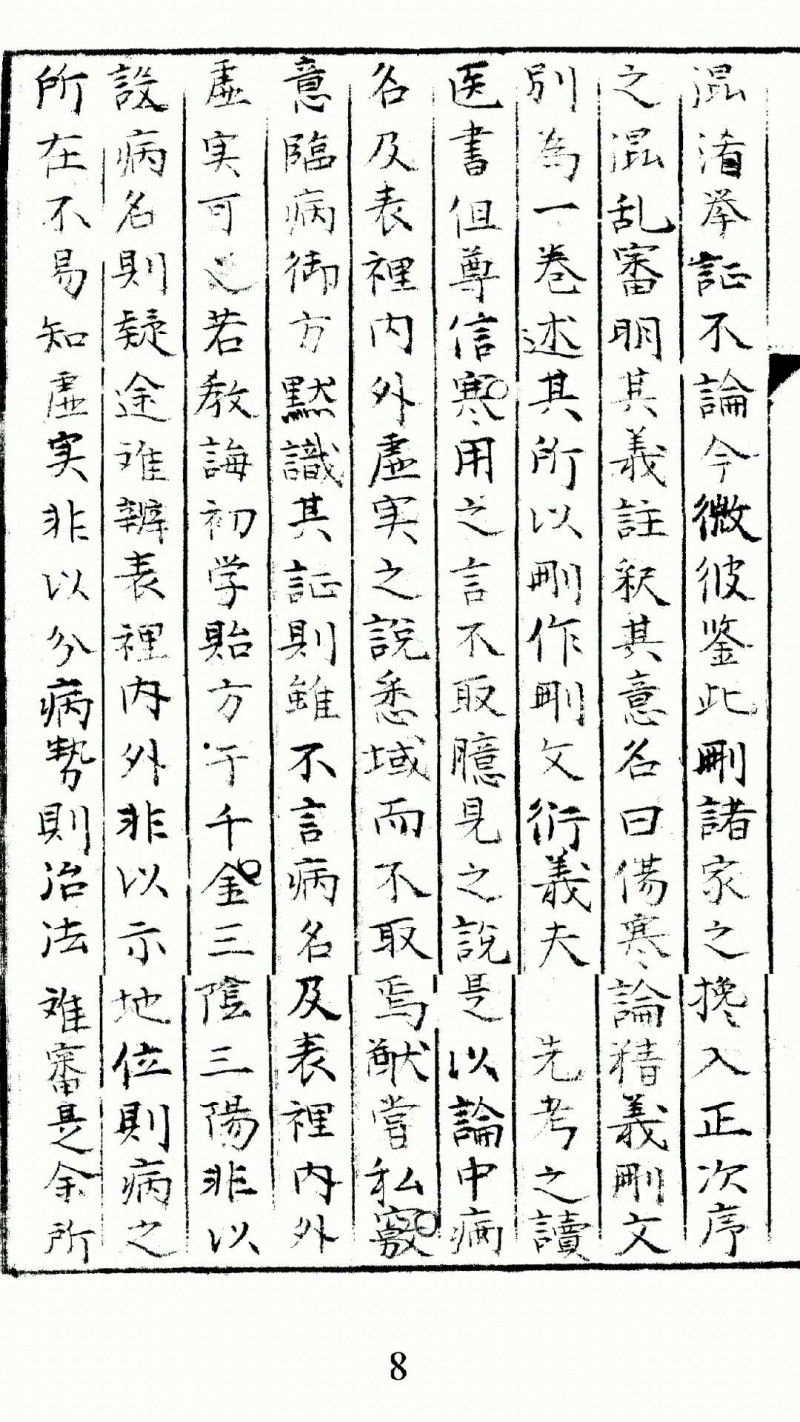 混淆挙証不論今微彼鉴此刪諸家之搀入正次序
之混乱審明其義註釈其意名曰傷寒論精義刪文
別為一巻述其所以刪作刪文衍義夫 先考之讀
医書但尊信寒用之言不取臆見之說是以論中病
名及表裡内外虚実之說悉域而不取焉猷嘗私竅
意臨病御方黙識其証則雖不言病名及表裡内外
虚実可也若教誨初学貽方于千金三陰三陽非以
設病名則疑途难辨表裡内外非以示地位則病之
所在不易知虚実非以分病势則治法难審是余所
8